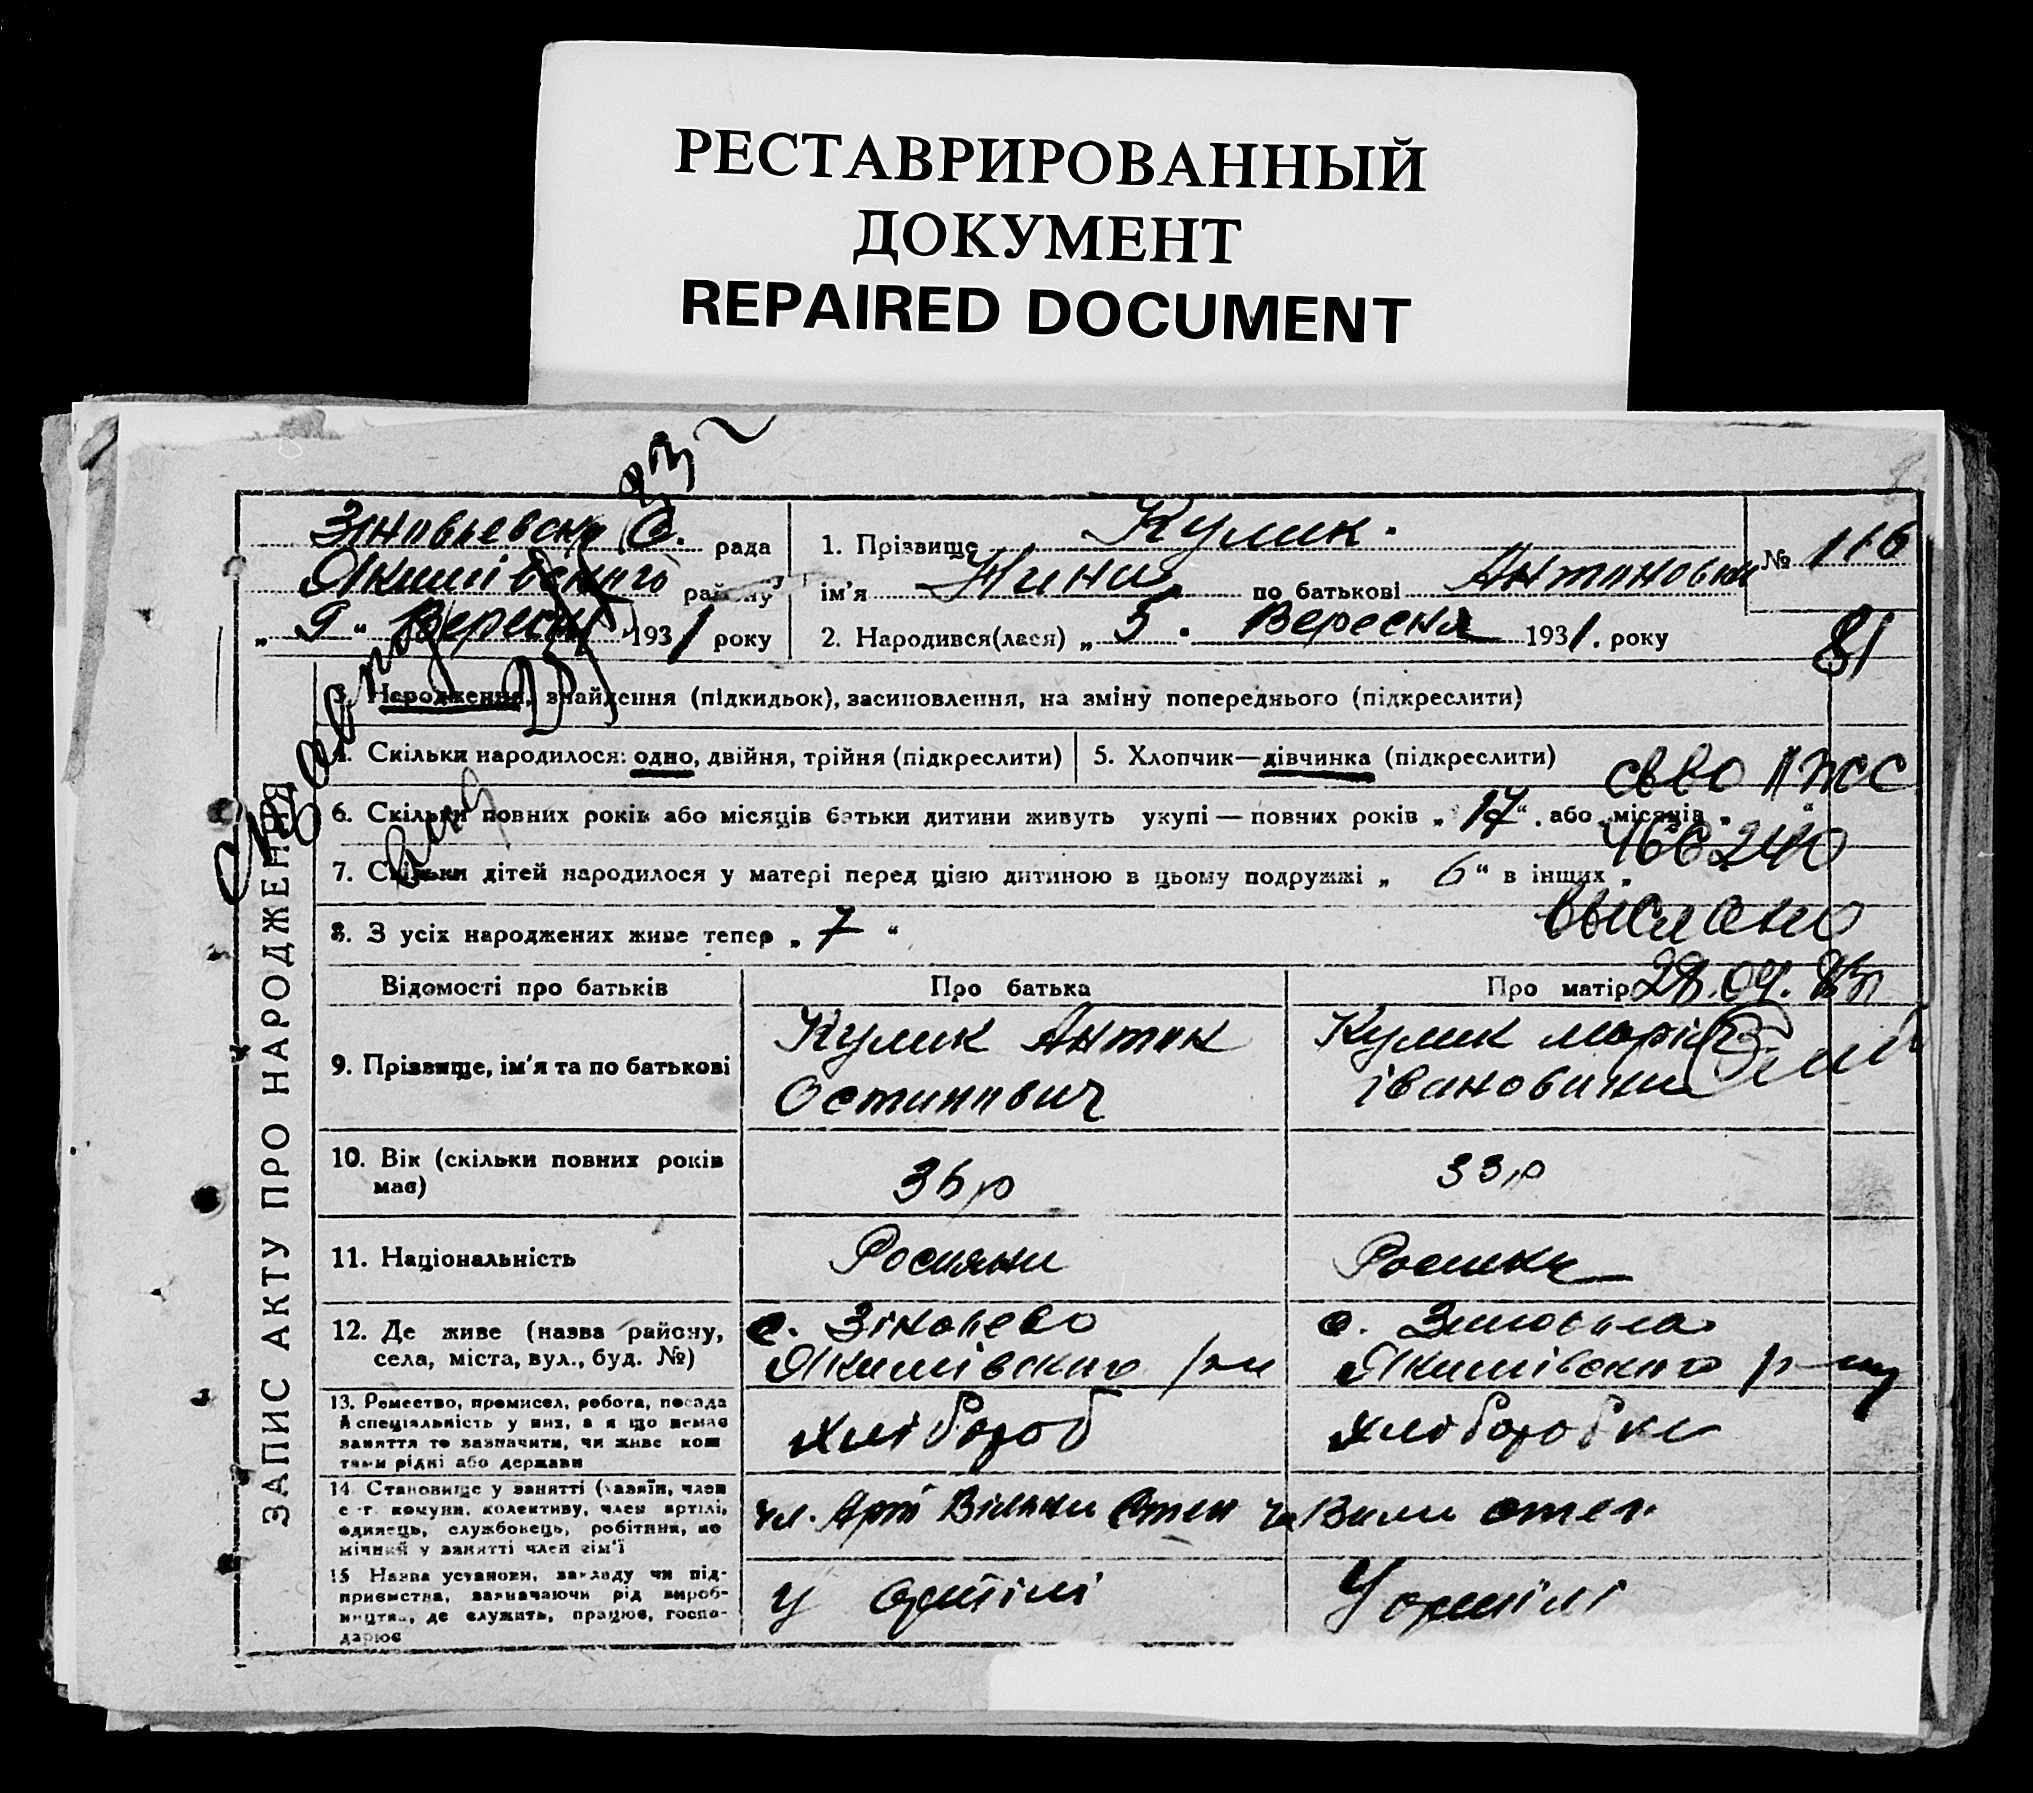 РЕСТАВРИРОВАННЫЙ
ДОКУМЕНТ
REPAIRED DOCUMENT
ЗАПИС АКТУ ПРО НАРОДЖЕННЯ
Зіновьевска С. рада
Якимівского району
„ 9 “ Вересня 1931 року
1. Прізвище Кулик.
ім'я Нина по батькові Антоновна
№ 116
2. Народився(лася) „ 5 “ Вересня 1931. року
81
3. Народження, знайдення (підкидьок), засиновлення, на зміну попереднього (підкреслити)
4. Скільки народилося: одно, двійня, трійня (підкреслити)
5. Хлопчик—дівчинка (підкреслити)
6. Скільки повних років або місяців батьки дитини живуть укупі — повних років „ 17 “. або місяців „ “
7. Скільки дітей народилося у матері перед цією дитиною в цьому подружжі „ 6 “ в інших „
8. З усіх народжених живе тепер „ 7 “
св-во ІІ ЖС
466240
выслано
Відомості про батьків
Про батька
Про матір
9. Прізвище, ім'я та по батькові
Кулик Антон
Остапович
Кулик Марія
Івановина
10. Вік (скільки повних років
має)
36 р
33 р
11. Національність
Росияни
Росиянка
12. Де живе (назва району,
села, міста, вул., буд. №)
с. Зіновьево
Якимівского р-н
с. Зиновьева
Якимівского р-ну
13. Ремество, промисел, робота, посада
й спеціяльність у них, а я що немає
заняття то зазначити, чи живе кош
тами рідні або держави
хлібороб
хліборобка
14. Становище у занятті (хазяїн, член
с.-г. комуни, колективу, член артілі,
одинець, службовець, робітник, по
мічний у занятті член сім'ї
чл. Арт Вільний Степ
Вилн степ
15. Назва установи, закладу чи під-
приємства, зазначаючи рід вироб-
ництва, де служить, працює, госпо-
дарює
у артілі
У артілі